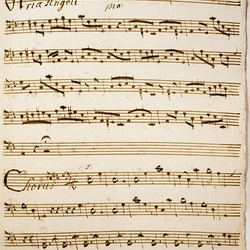 Aria Angeli pia:
Chorus